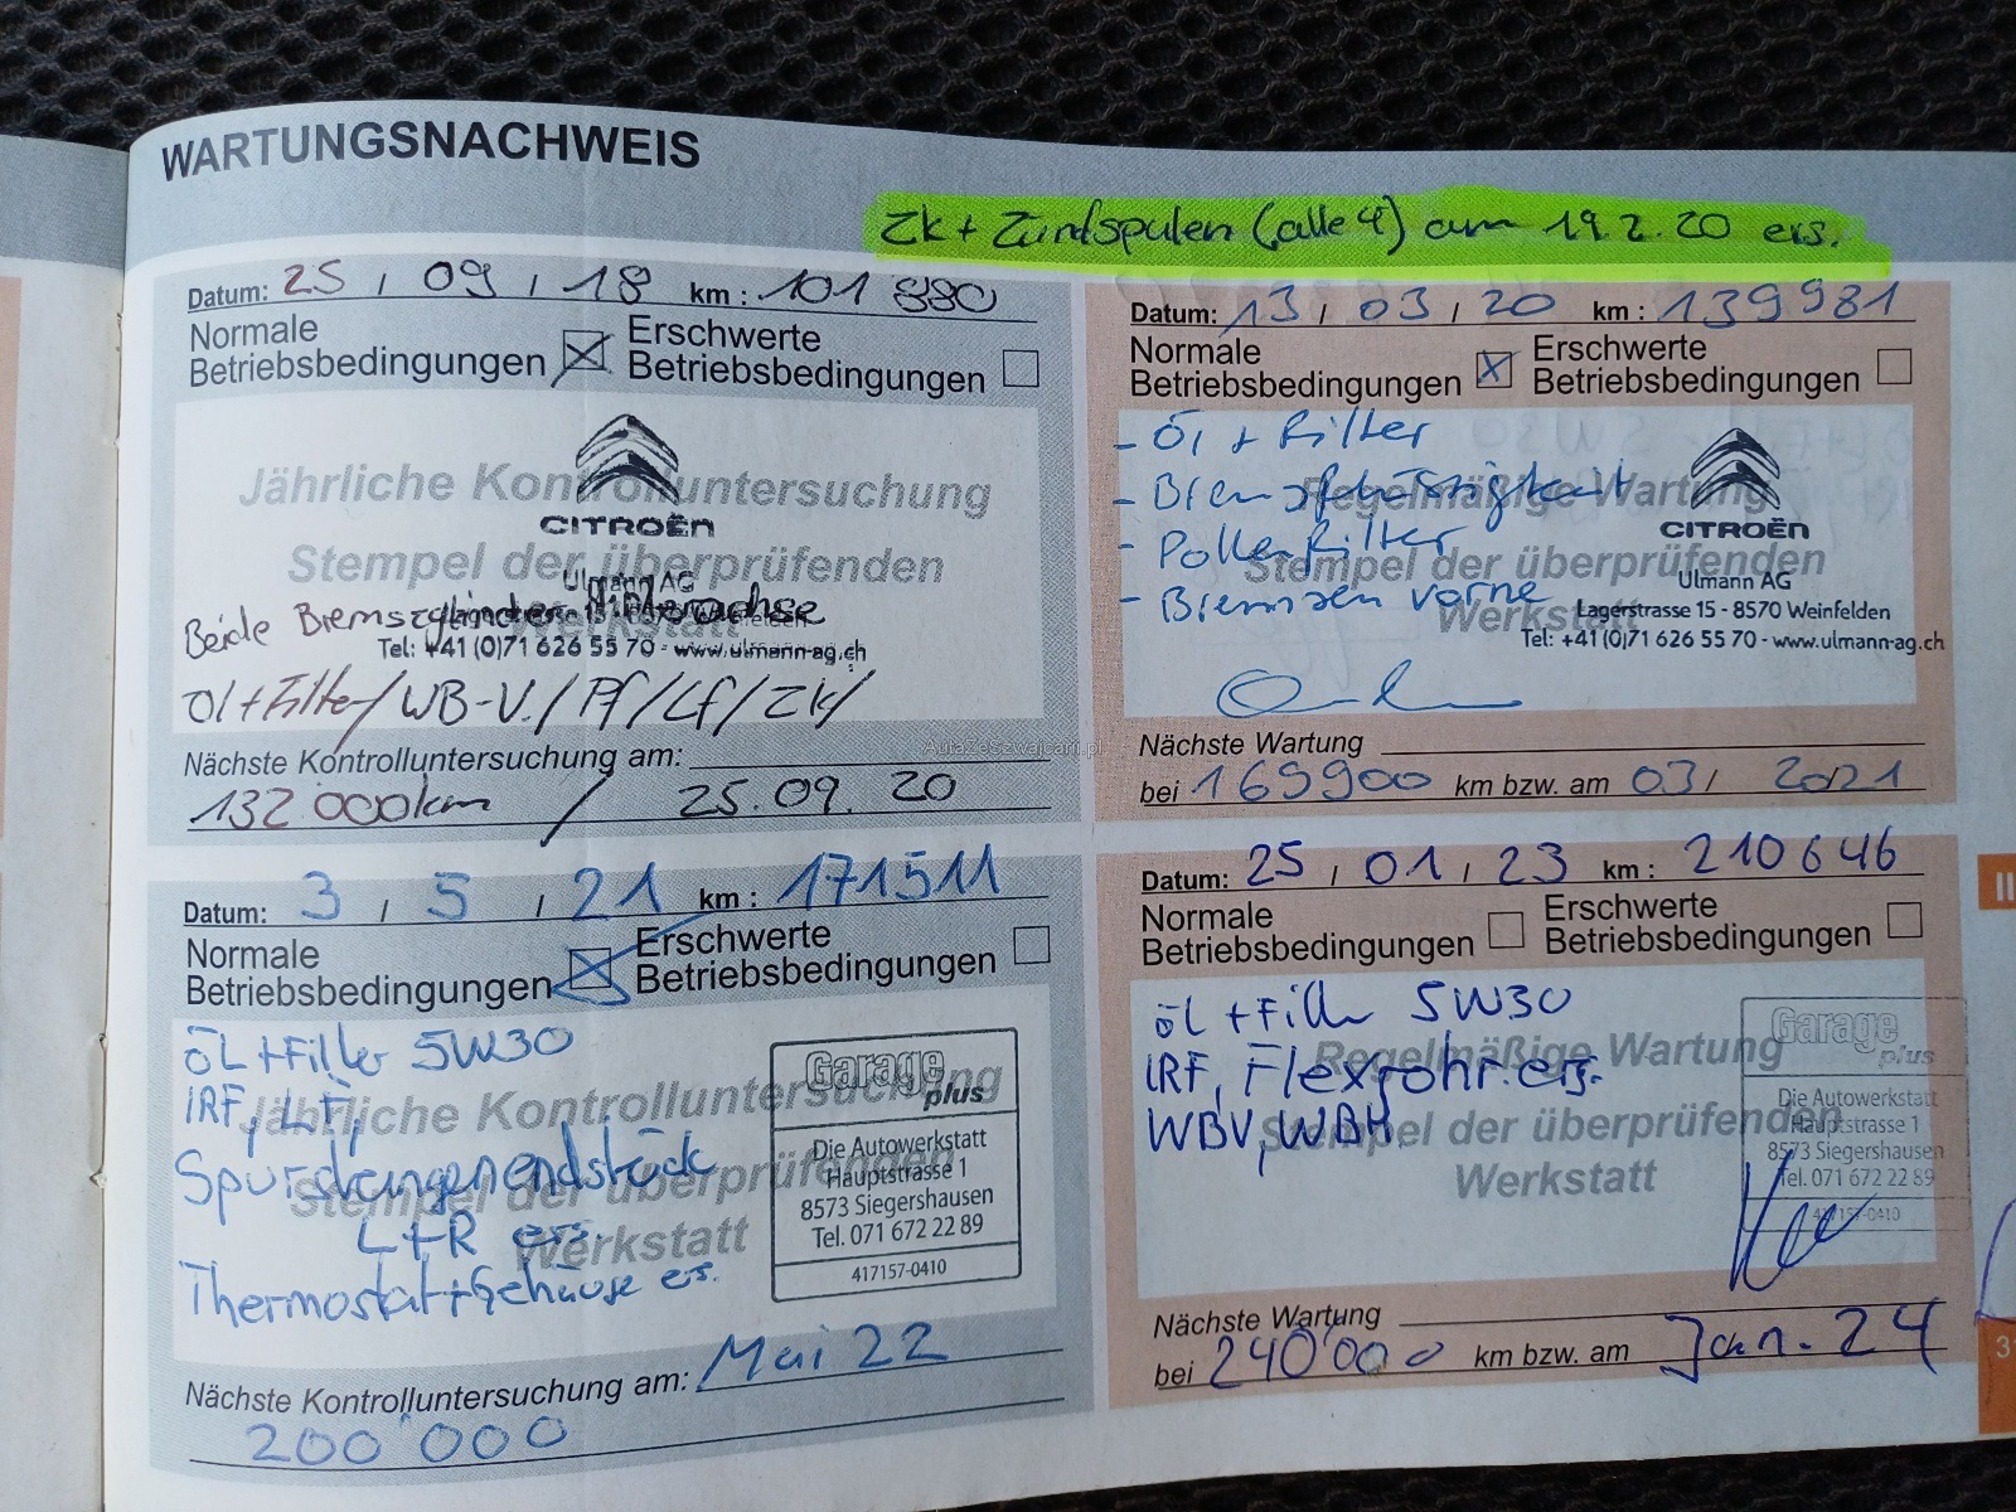 WARTUNGSNACHWEIS
Zk + Zündspulen (alle 4) am 19.2.20 ers.
Datum: 25 / 09 / 18 km : 101 880
Normale Betriebsbedingungen Erschwerte Betriebsbedingungen
Jährliche Kontrolluntersuchung
CITROËN
Stempel der überprüfenden
Werkstatt
Ulmann AG
Beide Bremszylinder Hinterachse
Tel: +41 (0)71 626 55 70 - www.ulmann-ag.ch
Öl + Filter / WB-V. / Pf / Lf / Zk /
Nächste Kontrolluntersuchung am:
132 000km / 25.09.20
Datum: 13 / 03 / 20 km : 139981
Normale Betriebsbedingungen Erschwerte Betriebsbedingungen
- Öl + Filter
- Bremsflüssigkeit
Regelmäßige Wartung
CITROËN
- Pollenfilter
Stempel der überprüfenden
Ulmann AG
- Bremsen vorne
Werkstatt
Lagerstrasse 15 - 8570 Weinfelden
Tel: +41 (0)71 626 55 70 - www.ulmann-ag.ch
Nächste Wartung
bei 169900 km bzw. am 03 / 2021
AutaZeSzwajcarii.pl
Datum: 3 / 5 / 21 km : 171511
Normale Betriebsbedingungen Erschwerte Betriebsbedingungen
ÖL + Filter 5W30
IRF, LF,
Jährliche Kontrolluntersuchung
Spurstangenendstück
Stempel der überprüfenden
L+R ers.
Werkstatt
Thermostat + Gehäuse ers.
Garage plus
Die Autowerkstatt
Hauptstrasse 1
8573 Siegershausen
Tel. 071 672 22 89
417157-0410
Nächste Kontrolluntersuchung am: Mai 22
200'000
Datum: 25 / 01 / 23 km : 210646
Normale Betriebsbedingungen Erschwerte Betriebsbedingungen
ÖL + Filter 5W30
Regelmäßige Wartung
IRF, Flexrohr ers.
WBV, WBH.
Stempel der überprüfenden
Werkstatt
Garage plus
Die Autowerkstatt
Hauptstrasse 1
8573 Siegershausen
Tel. 071 672 22 89
417157-0410
Nächste Wartung
bei 240'000 km bzw. am Jan. 24
II